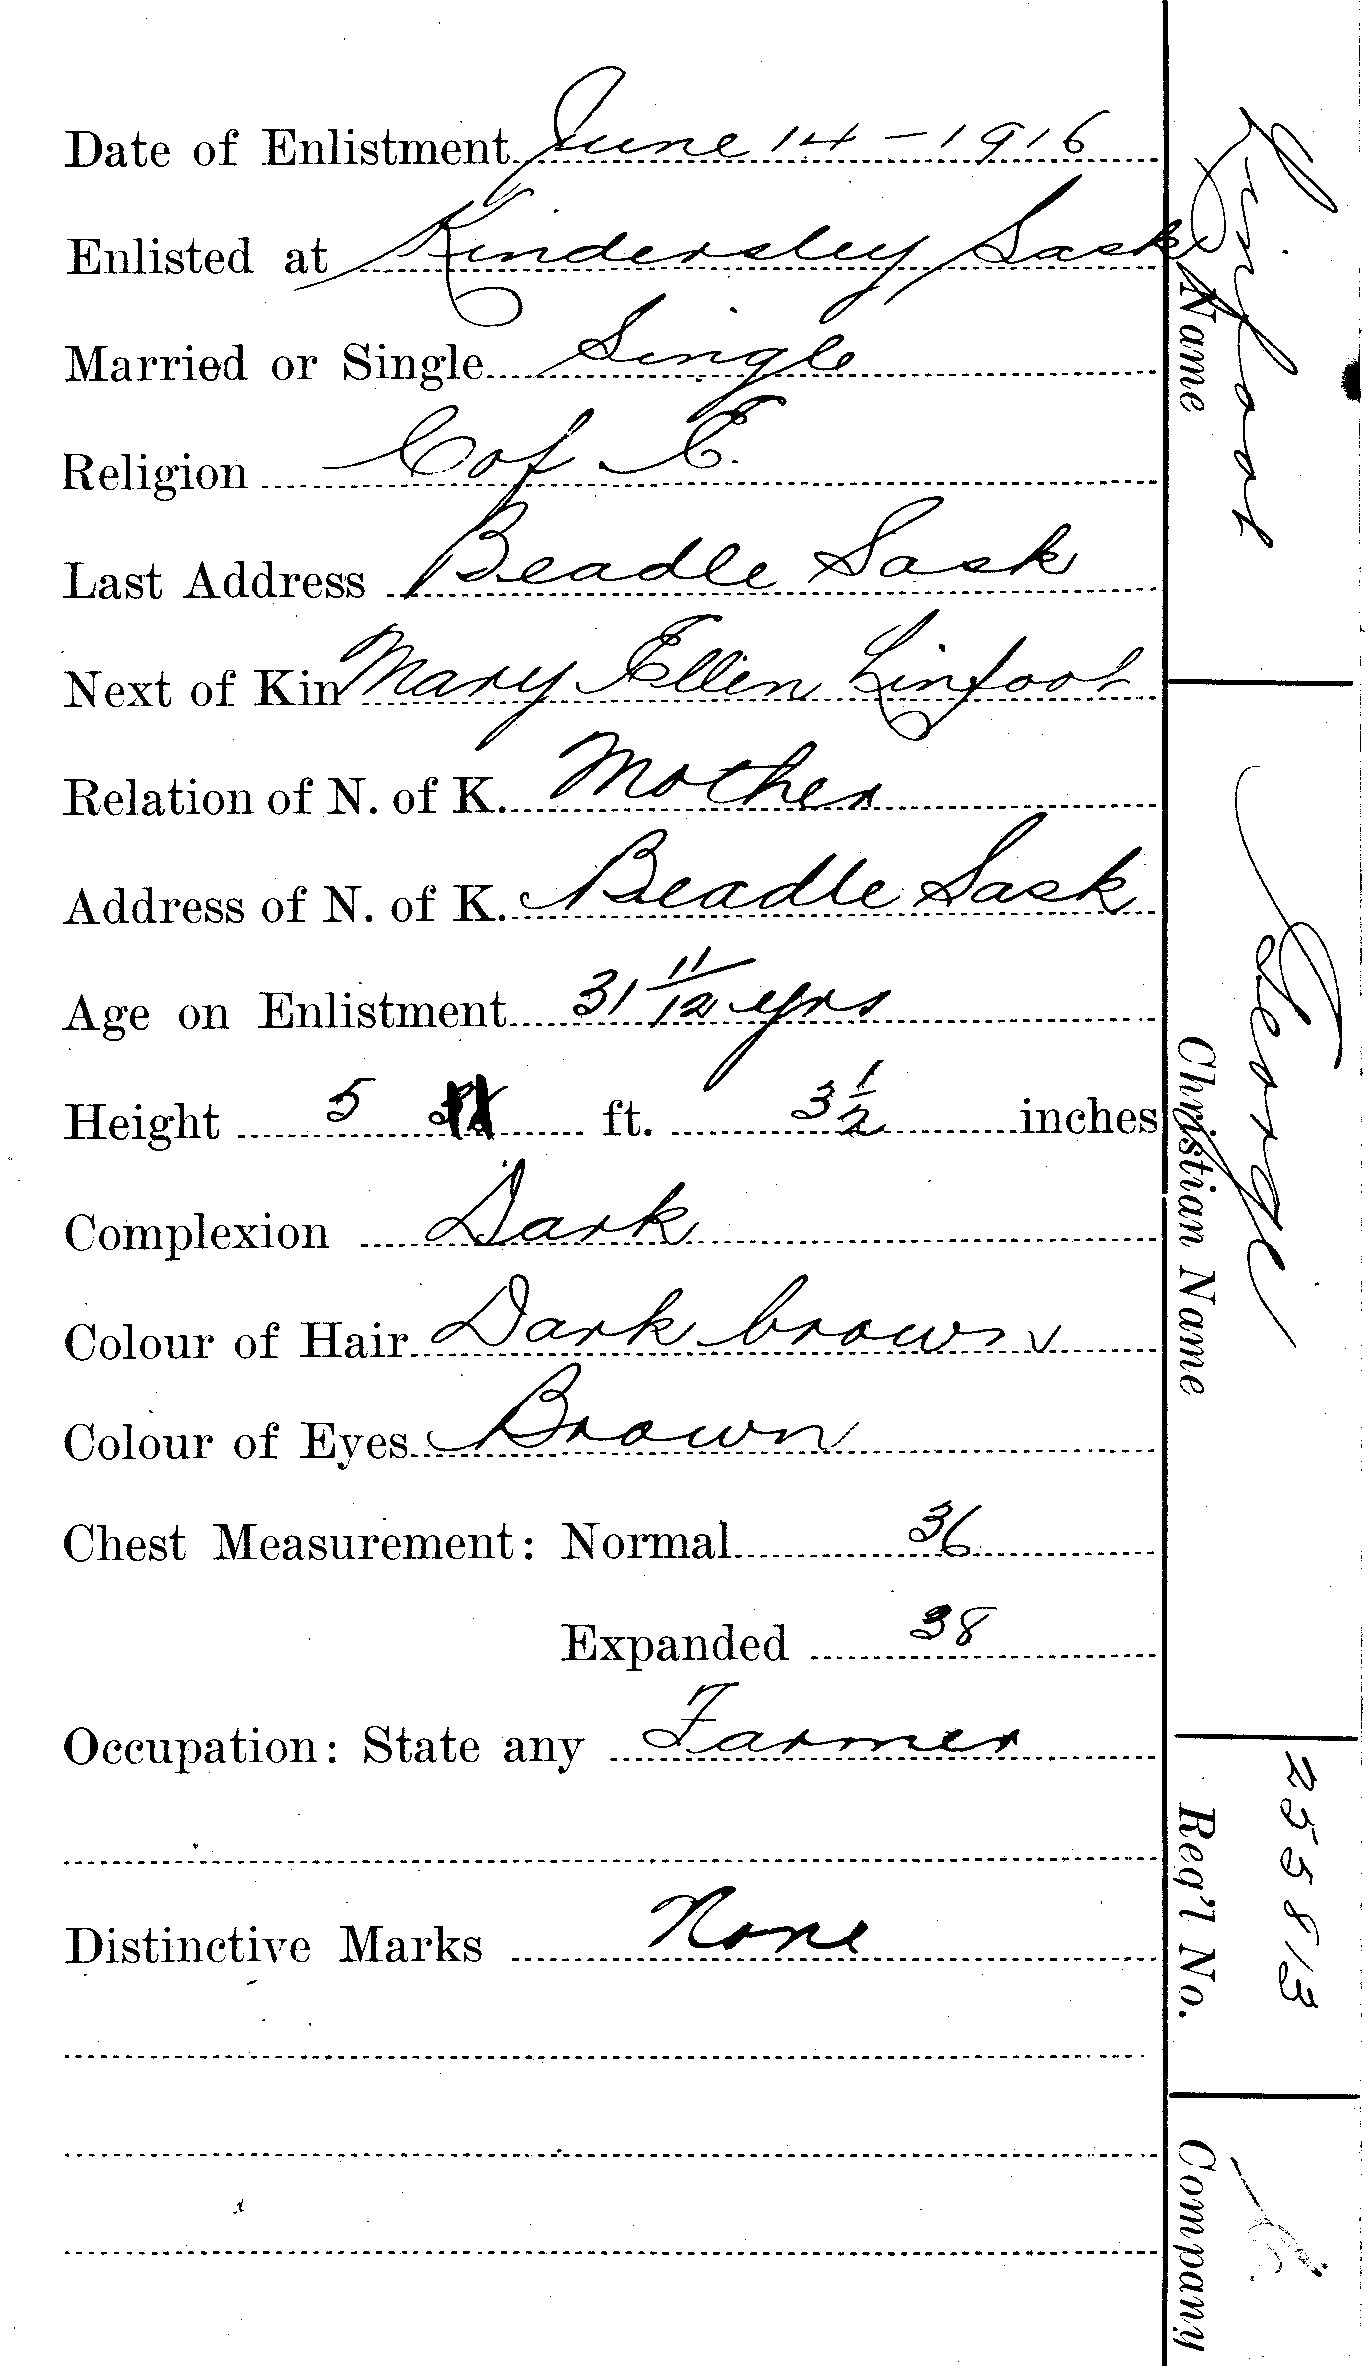 Date of Enlistment June 14 - 1916
Enlisted at Kindersley Sask
Married or Single Single
Religion C of E.
Last Address Beadle Sask
Next of Kin Mary Ellen Linfoot
Relation of N. of K. Mother
Address of N. of K. Beadle Sask
Age on Enlistment 31 11/12 yrs
Height 5 ft. 3 1/2 inches
Complexion Dark
Colour of Hair Dark brown
Colour of Eyes Brown
Chest Measurement: Normal 36
Expanded 38
Occupation: State any Farmer
Distinctive Marks None
Linfoot
Name
George
Christian Name
255813
Reg'l No.
Company